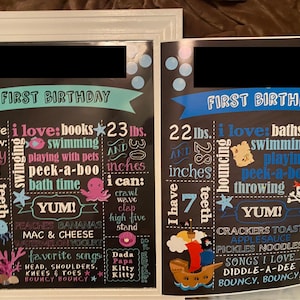 FIRST BIRTHDAY
i love: books
swimming
swinging
playing with pets
peek-a-boo
bath time
23 lbs.
AND 30
inches
i can:
crawl
wave
clap
high five
stand
teeth
YUM!
BANANAS
MAC & CHEESE
YOGURT
favorite songs
HEAD, SHOULDERS,
KNEES & TOES
BOUNCY, BOUNCY
Dada
Papa
Kitty
Kitty
FIRST BIRTH
22 lbs.
AND 28
inches
I have
7
teeth
i love: bath
swimming
bouncing
playing
peek-a-boo
throwing
YUM!
CRACKERS TOAST
APPLESAUCE
PICKLES NOODLES
SONGS I LOVE
DIDDLE-A-DEE
BOUNCY, BOUNCY